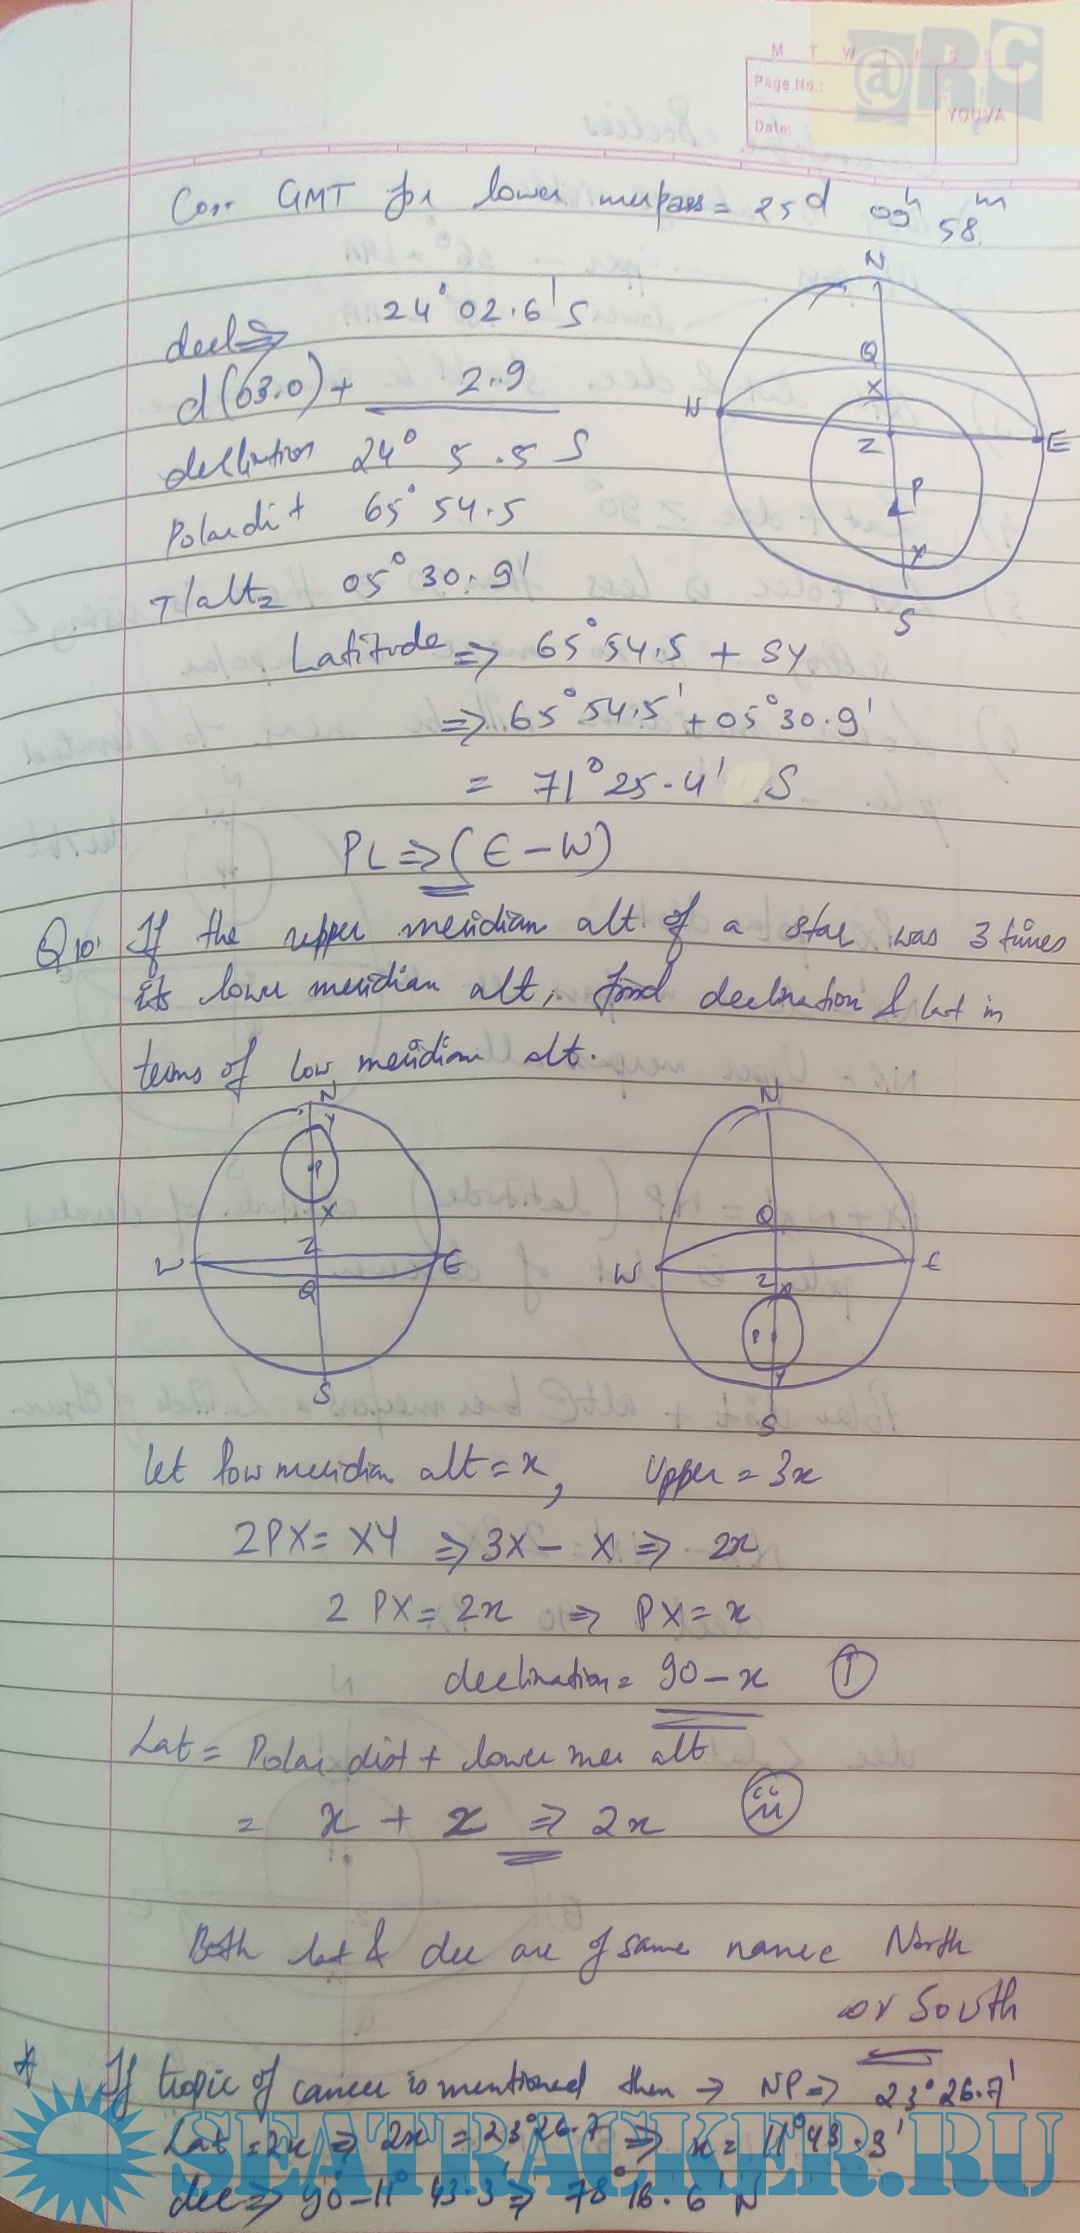 @RC
M T W T F S S
Page No.:
Date:
YOUVA
Corr GMT for lower merpass = 25d 00h 58m
decl ⇒ 24° 02.6' S
d(03.0) + 2.9
declination 24° 5.5 S
Polar dist 65° 54.5
T/alt = 05° 30.9'
N
Q
X
W
Z
E
P
Y
S
Latitude ⇒ 65° 54.5 + SY
⇒ 65° 54.5' + 05° 30.9'
= 71° 25.4' S
PL ⇒ (E – W)
Q10' If the upper meridian alt. of a star was 3 times
its lower meridian alt, find declination & lat in
terms of low meridian alt.
N
Y
P
X
Z
W
E
Q
S
N
Q
W
E
Z
X
P
Y
S
let low meridian alt = x, Upper = 3x
2PX = XY ⇒ 3x – x ⇒ 2x
2 PX = 2x ⇒ PX = x
declination = 90 – x (I)
Lat = Polar dist + lower mer alt
= x + x ⇒ 2x (ii)
Both lat & dec are of same name North
or South
* If tropic of cancer is mentioned then → NP ⇒ 23° 26.7'
Lat = 2x ⇒ 2x = 23° 26.7 ⇒ x = 11° 43.3'
dec ⇒ 90° – 11° 43.3' ⇒ 78° 16.6' N
SEATRACKER.RU